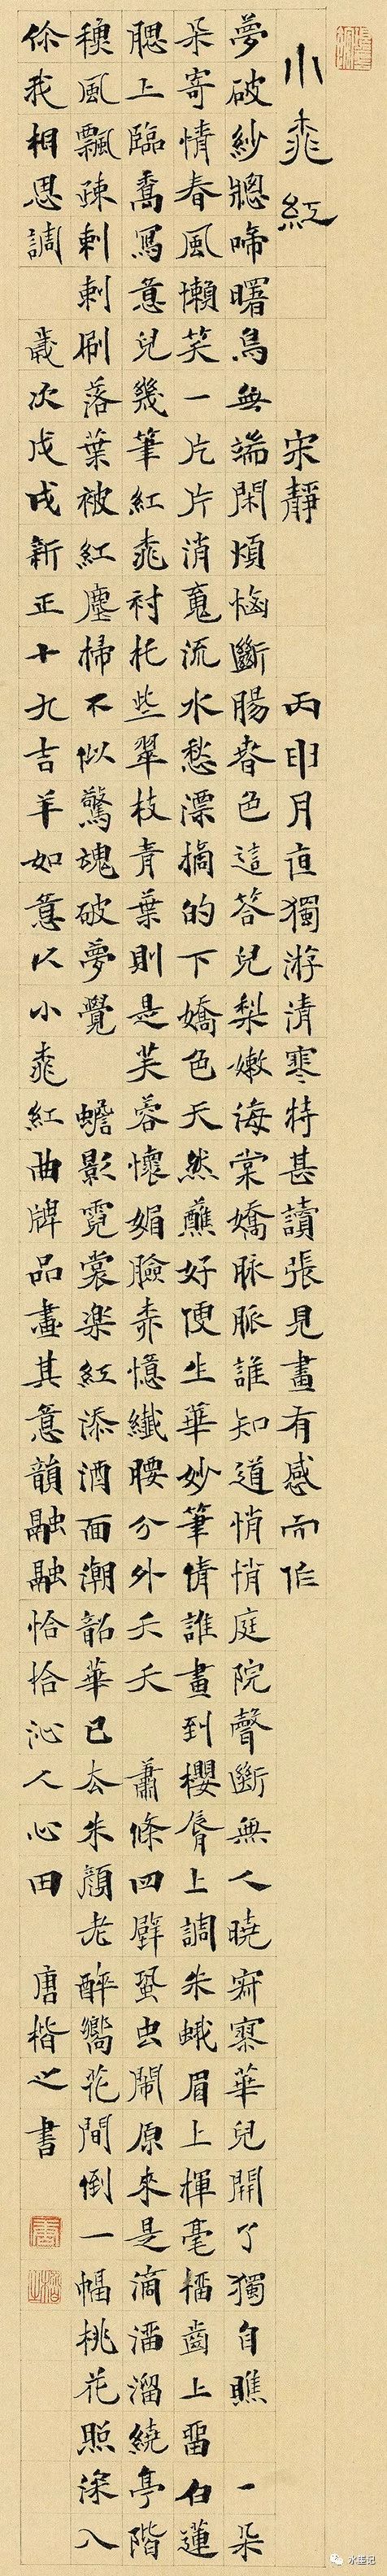 小桃紅 宋靜 丙申月夜獨游清寒特甚讀張見畫有感而作
夢破紗窗啼曙鳥無端閑煩惱斷腸春色這答兒梨嫩海棠嬌脉脈誰知道悄悄庭院聲斷無人曉寂寞華兒開了獨自瞧 一朵
朵寄情春風懶笑一片片消魂流水愁漂摘的下嬌色天然蘸好便生華妙筆倩誰畫到櫻脣上調朱蛾眉上揮毫齒上畱白蓮
腮上臨喬寫意兒幾筆紅桃衬托些翠枝青葉則是芙蓉懷媚臉赤憶纖腰分外夭夭 蕭條四壁蛩虫鬧原來是滴溜繞亭階
風飄疎剌剌刷落葉被紅塵掃不似驚魂破夢覺 蟾影霓裳染紅添酒面潮韶華已去朱顏老醉嚮花間倒一幅桃花照深八
你我相思調 歲次戊戌新正十九吉羊如意以小桃紅曲牌品畫其意韻融融恰恰沁人心田 唐楷之書
水墨记